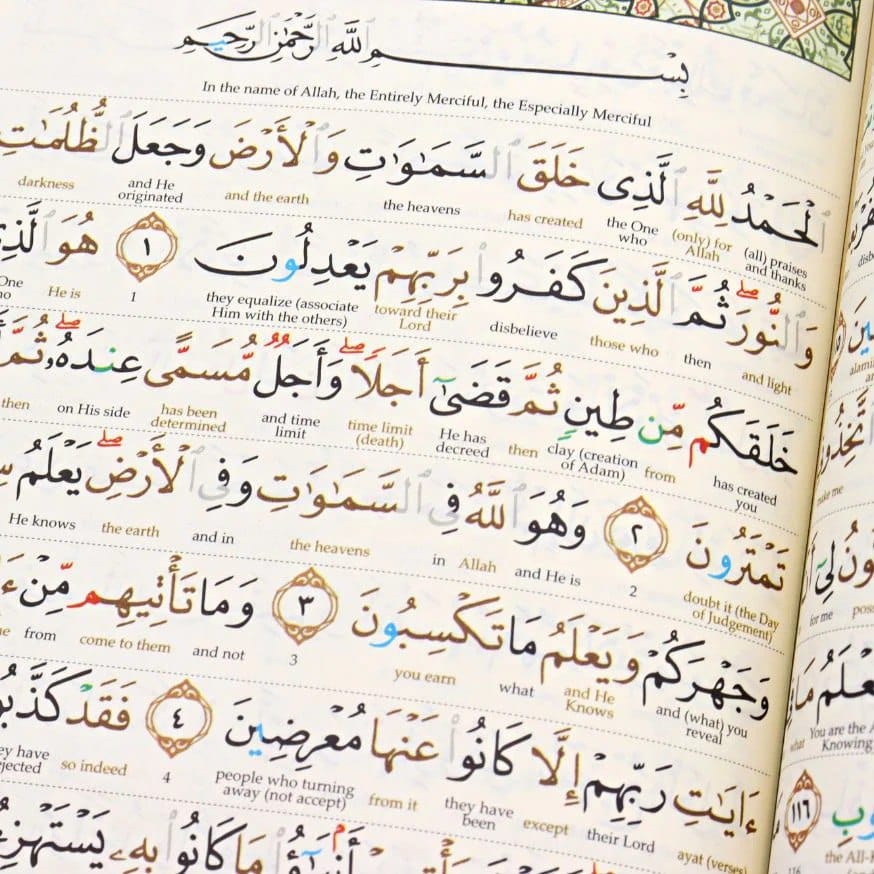 بِسْمِ ٱللَّهِ ٱلرَّحْمَٰنِ ٱلرَّحِيمِ
In the name of Allah, the Entirely Merciful, the Especially Merciful
ٱلْحَمْدُ لِلَّهِ ٱلَّذِى خَلَقَ ٱلسَّمَٰوَٰتِ وَٱلْأَرْضَ وَجَعَلَ ٱلظُّلُمَٰتِ
(all) praises and thanks (only) for Allah the One who has created the heavens and the earth and He originated darkness
وَٱلنُّورَ ۖ ثُمَّ ٱلَّذِينَ كَفَرُوا۟ بِرَبِّهِمْ يَعْدِلُونَ ١ هُوَ ٱلَّذِى
and light then those who disbelieve toward their Lord they equalize (associate Him with the others) 1 He is One
خَلَقَكُم مِّن طِينٍ ثُمَّ قَضَىٰٓ أَجَلًا ۖ وَأَجَلٌ مُّسَمًّى عِندَهُۥ ۖ ثُمَّ
has created you from clay (creation of Adam) then He has decreed time limit (death) and time limit has been determined on His side then
تَمْتَرُونَ ٢ وَهُوَ ٱللَّهُ فِى ٱلسَّمَٰوَٰتِ وَفِى ٱلْأَرْضِ ۖ يَعْلَمُ
doubt it (the Day of Judgement) 2 and He is Allah in the heavens and in the earth He knows
وَجَهْرَكُمْ وَيَعْلَمُ مَا تَكْسِبُونَ ٣ وَمَا تَأْتِيهِم مِّنْ
and (what) you reveal and He Knows what you earn 3 and not come to them from
ءَايَٰتِ رَبِّهِمْ إِلَّا كَانُوا۟ عَنْهَا مُعْرِضِينَ ٤ فَقَدْ كَذَّبُوا۟
ayat (verses) their Lord except they have been from it people who turning away (not accept) 4 so indeed
مَا كَانُوا۟ بِهِۦ
make me
for me
You are the
what Knowing
١١٦
116